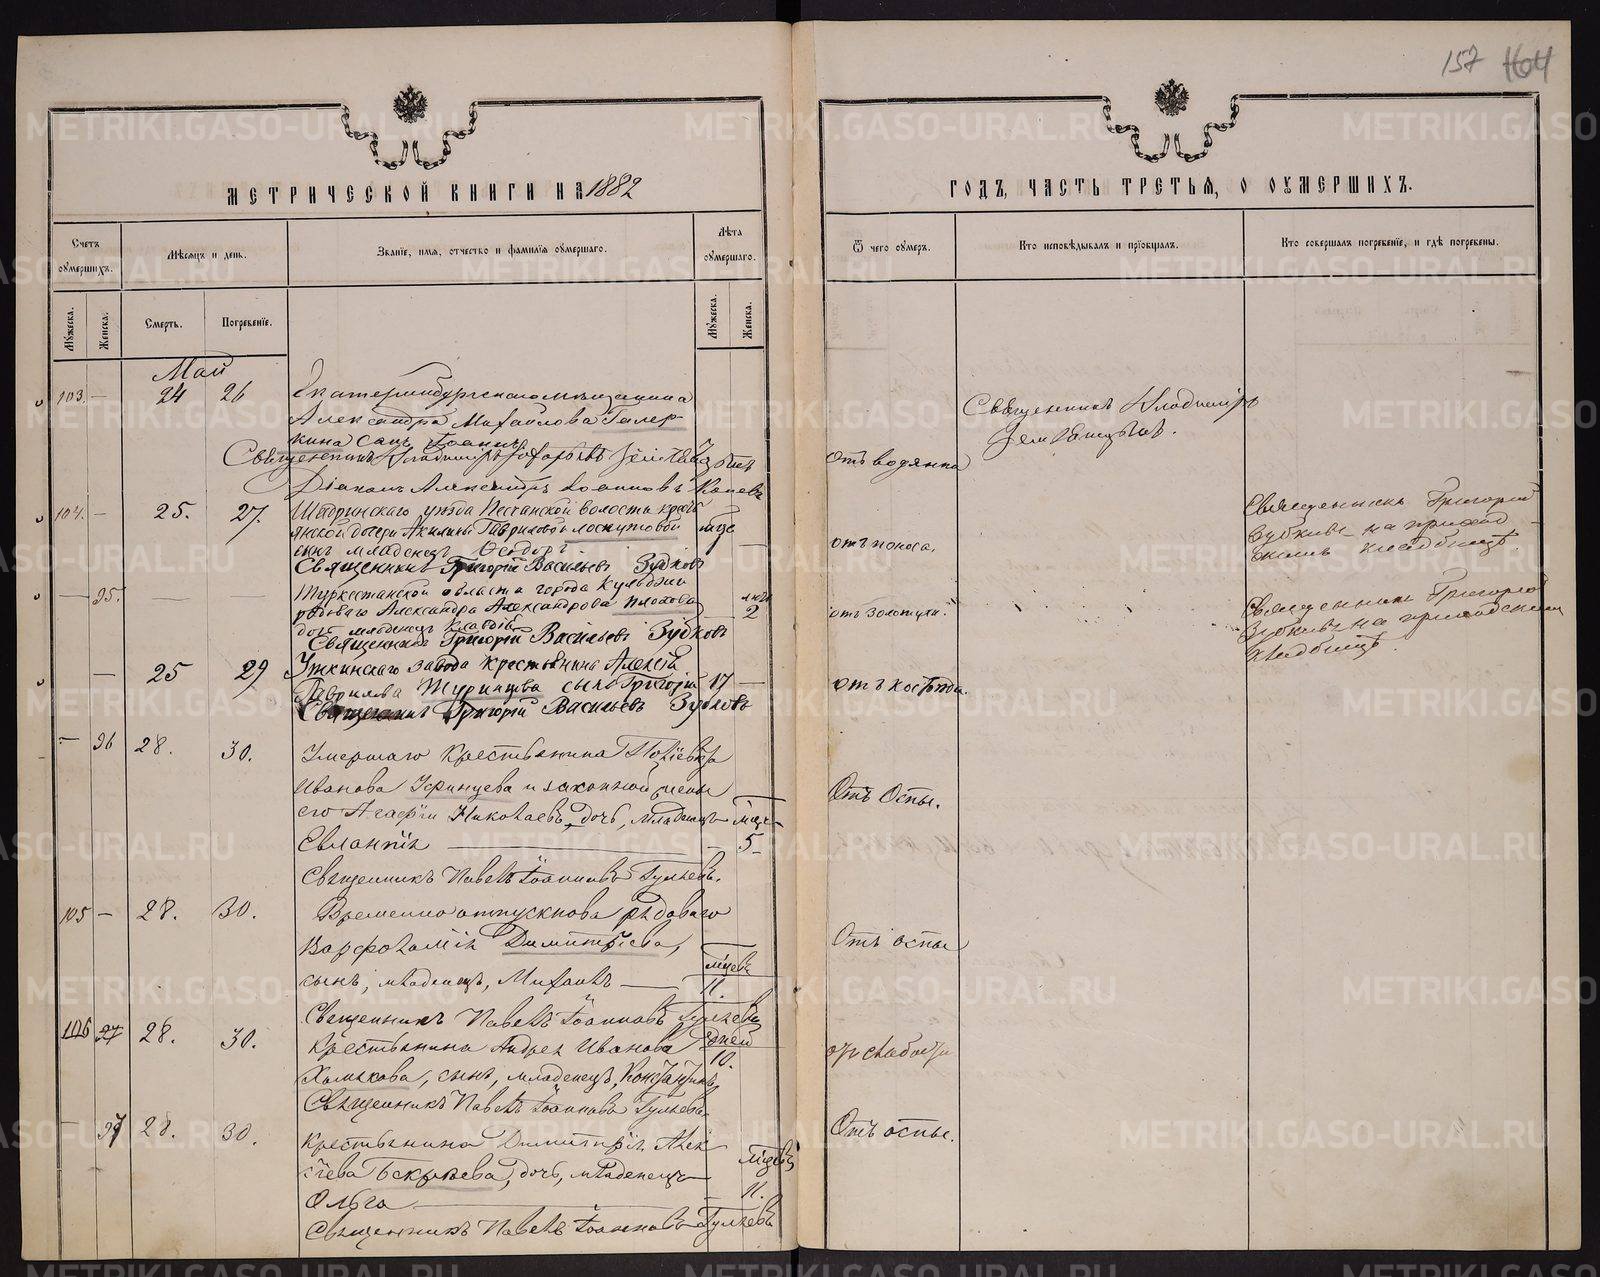 157 164
МЕТРИЧЕСКОЙ КНИГИ НА 1882
ГОДЪ, ЧАСТЬ ТРЕТЬЯ, О ОУМЕРШИХЪ.
Счетъ оумершихъ.
Мѣсяцъ и день.
Званіе, имя, отчество и фамилія оумершаго.
Лѣта оумершаго.
Ѿ чего оумеръ.
Кто исповѣдывалъ и пріобщалъ.
Кто совершалъ погребеніе, и гдѣ погребены.
Мужеска.
Женска.
Смерть.
Погребеніе.
Мужеска.
Женска.
Май
103. — 24 26 Екатеринбургскаго мѣщанина
Александра Михайлова Галер-
кина сынъ Іоаннъ
Священникъ Владиміръ
Отъ водянки
Священникъ Владиміръ
Діаконъ Александръ Іоанновъ
104. — 25. 27. Шадринскаго уѣзда Песчанской волости кресть
янской дочери Акилины Гавриловой Лоскутовой
сынъ младенецъ Ѳеодоръ
Священникъ Григорій Васильевъ Зубковъ
отъ поноса.
Священникъ Григорій
Зубковъ на приход
скомъ кладбищѣ.
— 95. — — Туркестанской области города Кульджи
рядоваго Александра Александрова Плотнова
дочь младенецъ Клавдія
2
Священникъ Григорій Васильевъ Зубковъ
отъ золотухи.
Священникъ Григорій
Зубковъ на приходскомъ
кладбищѣ.
— 25 29 Уткинскаго завода крестьянина Алексѣя
Гаврилова Шуринцева сынъ Григорій 17 —
Священникъ Григорій Васильевъ Зубковъ
— 96 28. 30. Умершаго крестьянина
Иванова Уфинцева и законной жены
его Агафіи Николаевой дочь, младенецъ
Евлампія — 5
Священникъ Павелъ Іоанновъ Гуляевъ.
Отъ Оспы.
105 — 28. 30. Временно отпускнова рядоваго
Варфоломія Димитріева,
сынъ, младенецъ, Михаилъ — 11.
Священникъ Павелъ Іоанновъ Гуляевъ
Отъ оспы
106 97 28. 30. Крестьянина Андрея Иванова дней
10.
Хомякова, сынъ, младенецъ, Константинъ,
Священникъ Павелъ Іоанновъ Гуляевъ.
отъ слабости
— 97 28. 30. Крестьянина Димитрія Алек
сѣева дочь, младенецъ
Ольга — 11.
Священникъ Павелъ Іоанновъ Гуляевъ
Отъ оспы.
METRIKI.GASO-URAL.RU